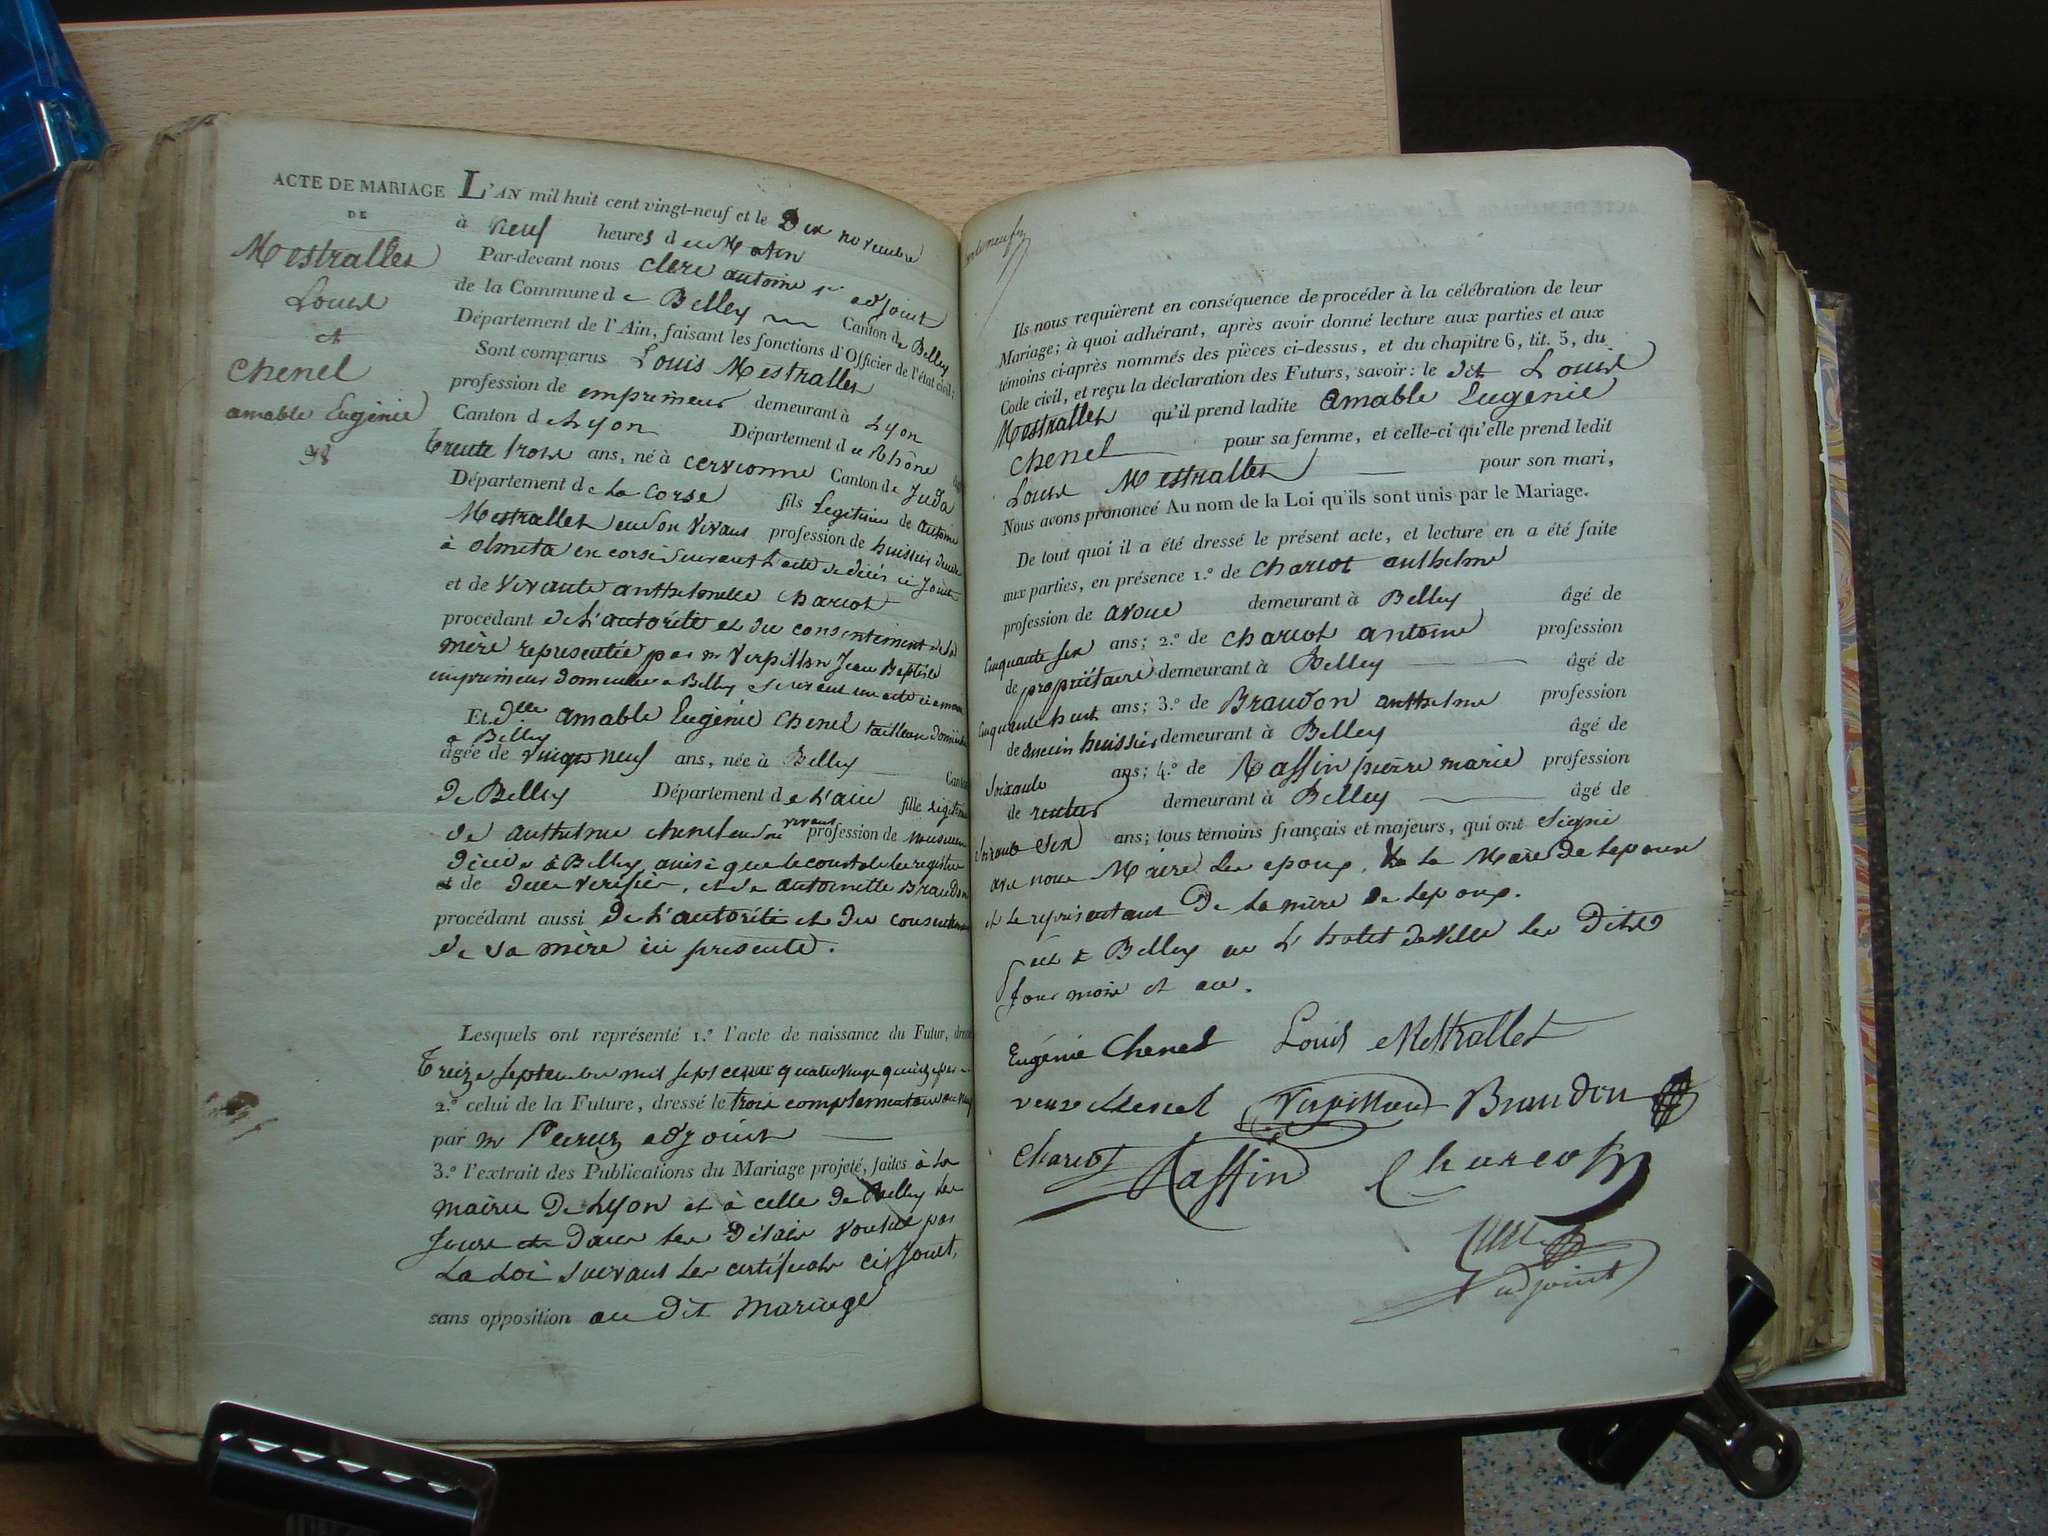 ACTE DE MARIAGE
DE
Mestrallet
Louis
et
Chenel
amable Eugénie
L'AN mil huit cent vingt-neuf et le Dix novembre
à neuf heures du Matin
Par-devant nous Clerc antoine adjoint
de la Commune de Belley Canton de Belley
Département de l'Ain, faisant les fonctions d'Officier de l'état civil;
Sont comparus Louis Mestrallet
profession de imprimeur demeurant à Lyon
Canton de Lyon Département du Rhône
trente trois ans, né à cervionne Canton de
Département de la Corse fils Legitime de antoine
Mestrallet en son vivant profession de huissier
à olmeta en corse suivant l'acte de décès ci joint
et de vivante anthelmette Charcot
procédant de l'autorité et du consentement de la
mère representée par mr Verpillon Jean Baptiste
imprimeur Belley suivant un acte
Et dlle amable Eugénie Chenel tailleuse
a Belley
âgée de vingt neuf ans, née à Belley Canton
de Belley Département de l'ain fille legitime
de anthelme chenel en son vivant profession de
décédé à Belley, ainsi que le constate les registres
et de verifié, et de antoinette Braudon
procédant aussi de l'autorité et du consentement
de sa mère ici presente.
Lesquels ont représenté 1.º l'acte de naissance du Futur, dressé
treize septembre mil sept cent quatre vingt quinze par
2.º celui de la Future, dressé le trois complementaire an
par mr adjoint
3.º l'extrait des Publications du Mariage projeté, faites à la
mairie de Lyon et à celle de Belley les
jours et dans les délais voulus par
La Loi suivant les certificats ci joint,
sans opposition au dit mariage
Ils nous requièrent en conséquence de procéder à la célébration de leur
Mariage; à quoi adhérant, après avoir donné lecture aux parties et aux
témoins ci-après nommés des pièces ci-dessus, et du chapitre 6, tit. 5, du
Code civil, et reçu la déclaration des Futurs, savoir: le dit Louis
Mestrallet qu'il prend ladite amable Eugénie
Chenel pour sa femme, et celle-ci qu'elle prend ledit
Louis Mestrallet pour son mari,
Nous avons prononcé Au nom de la Loi qu'ils sont unis par le Mariage.
De tout quoi il a été dressé le présent acte, et lecture en a été faite
aux parties, en présence 1.º de Charcot anthelme
profession de avoué demeurant à Belley âgé de
cinquante six ans; 2.º de Charcot antoine profession
de propriétaire demeurant à Belley âgé de
cinquante huit ans; 3.º de Braudon anthelme profession
de ancien huissier demeurant à Belley âgé de
soixante ans; 4.º de Raffin pierre marie profession
de rentier demeurant à Belley âgé de
soixante six ans; tous témoins français et majeurs, qui ont signé
avec nous Maire les epoux, la Mère de lepouse
et le représentant de la mère de lepoux.
fait à Belley en l'hotel de ville les dits
jour mois et an.
Eugénie Chenel Louis Mestrallet
veuve Chenel Verpillon Braudon
Charcot Raffin Charcot
Clerc
adjoint